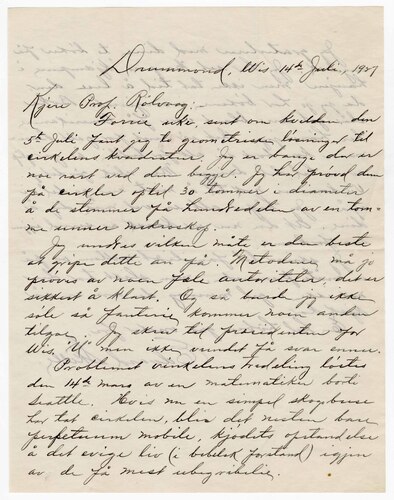 Drummond, Wis 14th Juli, 1927
Kjere Prof. Rölvaag:-
Forrie uke, sent om kvelden den
5th Juli fant jeg to geometriske løsninger til
cirkelens kvadratur. Jeg er bange der er
noe rart ved den begge. Jeg har prøvd dem
på cirkler optil 30 tommer i diameter
å de stemmer på hundredelen av en tom-
me unner mikroskop.
Jeg undras vilken måte er den beste
at gripe dette an på. Metodene må jo
prøves av noen fæle autoriteter, det er
sikkert å klart. Og så burde jeg ikke
søle så fanterie kommer noen anden
tilgae. Jeg skrev til presidenten for
Wis. "U" men ikke vundet få svar enner.
Problemet vinkelens tredeling løstes
den 14th mars av en matematiker borti
Seattle. Hvis nu en simpel skogsbuse
har tat cirkelen, blir det nesten bare
perpetuum mobile, kjødets opstandelse
å det evige liv (i bibelsk forstand) igjen
av de få mest ubegripelie.